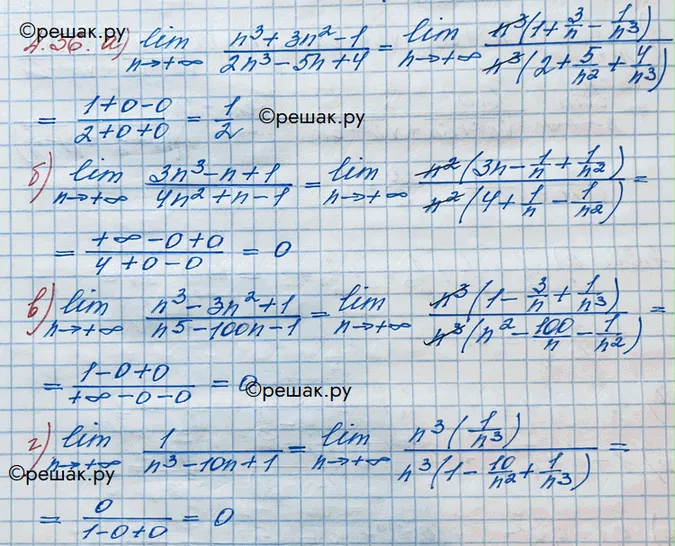 ©решак.ру
4.56. а) lim n→+∞ (n³+3n²-1)/(2n³-5n+4) = lim n→+∞ n³(1+3/n-1/n³)/n³(2+5/n²+4/n³)
= (1+0-0)/(2+0+0) = 1/2 ©решак.ру
б) lim n→+∞ (3n³-n+1)/(4n²+n-1) = lim n→+∞ n²(3n-1/n+1/n²)/n²(4+1/n-1/n²) =
= (+∞-0+0)/(4+0-0) = 0
в) lim n→+∞ (n³-3n²+1)/(n⁵-100n-1) = lim n→+∞ n³(1-3/n+1/n³)/n³(n²-100/n-1/n²) =
= (1-0+0)/(+∞-0-0) = 0 ©решак.ру
г) lim n→+∞ 1/(n³-10n+1) = lim n→+∞ n³(1/n³)/n³(1-10/n²+1/n³) =
©решак.ру
= 0/(1-0+0) = 0